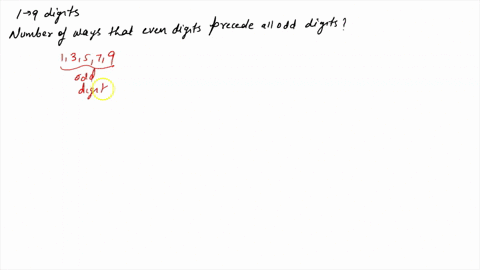 1→9 digits
Number of ways that even digits precede all odd digits?
1,3,5,7,9
odd
digit